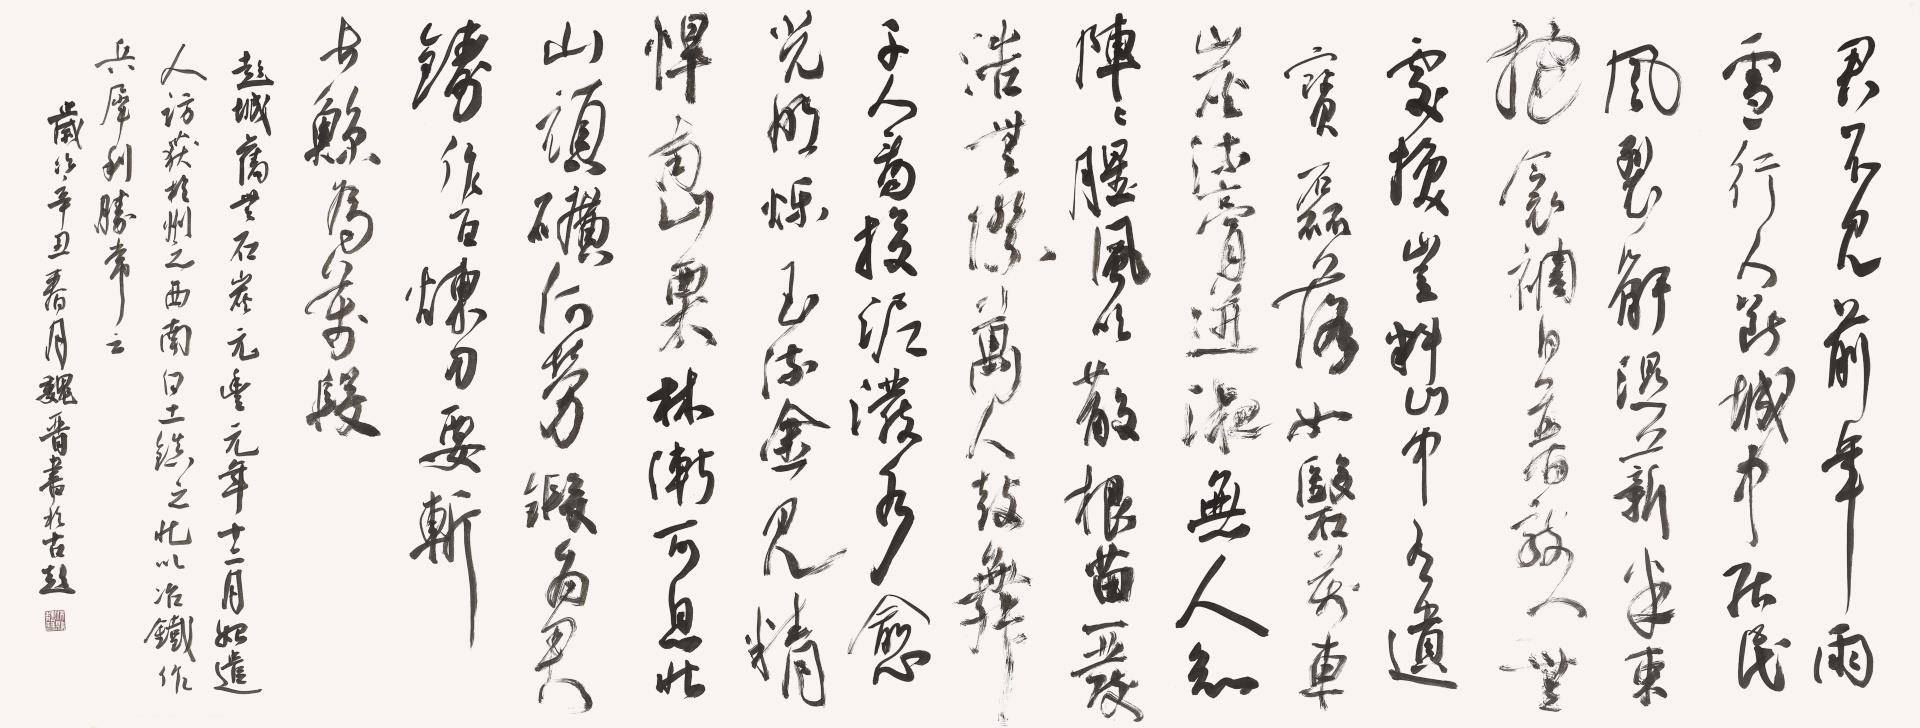 君不見前年雨
雪行人斷城中居民
風裂骭濕薪半束
抱衾裯日暮敲門無
處換豈料山中有遺
寶磊落如䃜萬車
炭流膏迸液無人知
陣陣腥風吹散根苗一發
浩無際萬人鼓舞
千人看投泥潑水愈
光明爍玉流金見精
悍南山栗林漸可息北
山頑礦何勞鍛為君
鑄作百煉刀要斬
長鯨為萬段
彭城舊無石炭元豐元年十二月始遣
人訪獲於州之西南白土鎮之北以冶鐵作
兵犀利勝常云
歲次辛丑春月魏晉書於古彭